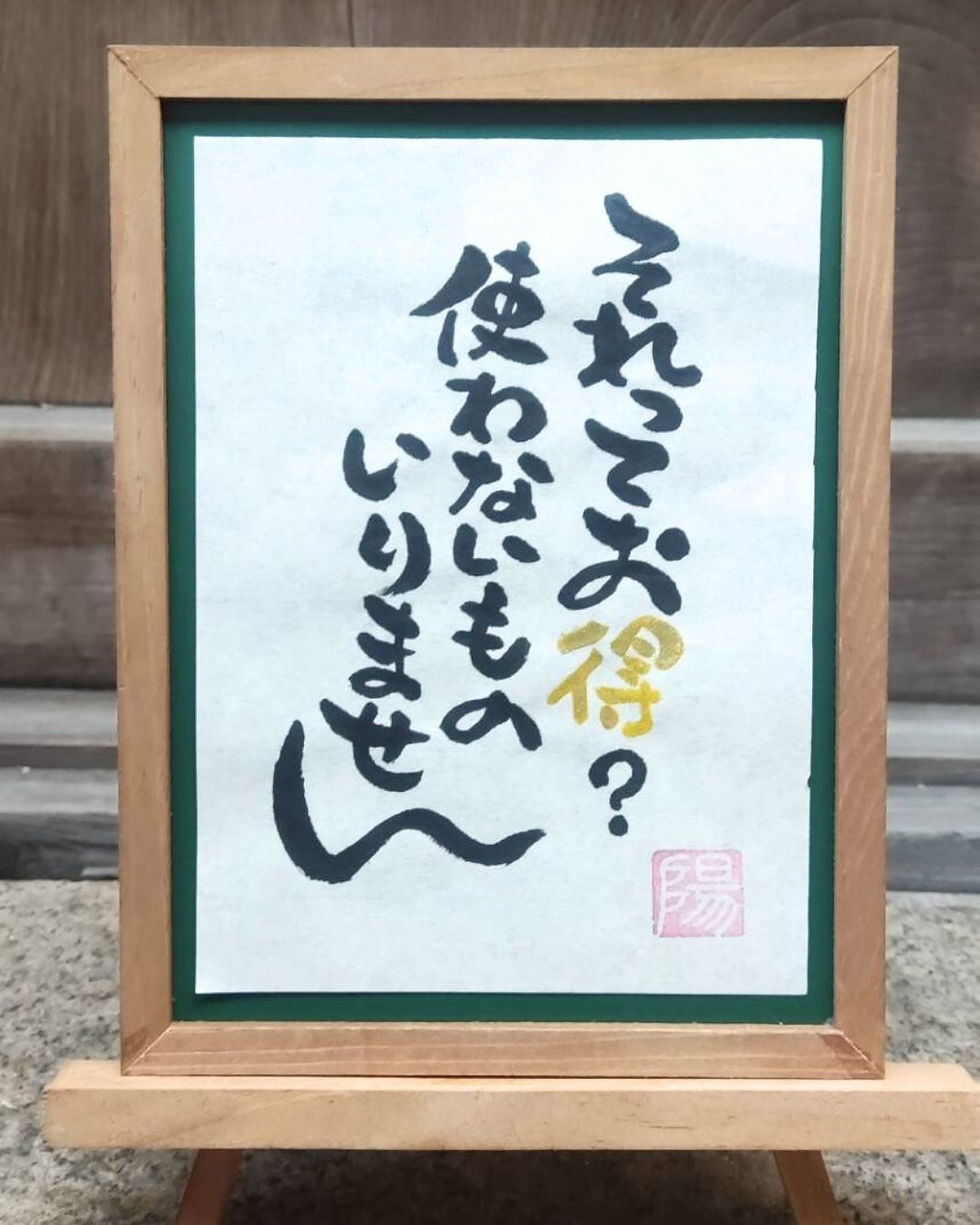 それってお得?
使わないもの
いりません
陽